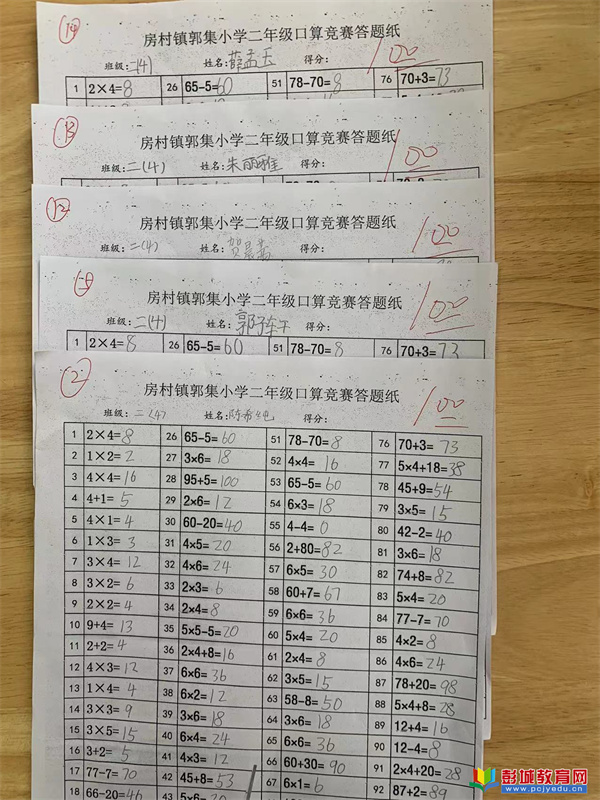 14
房村镇郭集小学二年级口算竞赛答题纸
100
班级:二(4) 姓名:薛孟玉 得分:
1 2×4=8 26 65-5=60 51 78-70=8 76 70+3=73
13
房村镇郭集小学二年级口算竞赛答题纸
100
班级:二(4) 姓名:朱丽雅 得分:
12
房村镇郭集小学二年级口算竞赛答题纸
100
班级:二(4) 姓名:贺 得分:
房村镇郭集小学二年级口算竞赛答题纸
100
班级:二(4) 姓名:郭 得分:
1 2×4=8 26 65-5=60 51 78-70=8 76 70+3=73
2
房村镇郭集小学二年级口算竞赛答题纸
100
班级:二(4) 姓名:陈希纯 得分:
1 2×4=8 26 65-5=60 51 78-70=8 76 70+3=73
2 1×2=2 27 3×6=18 52 4×4=16 77 5×4+18=38
3 4×4=16 28 95+5=100 53 65-5=60 78 45+9=54
4 4+1=5 29 2×6=12 54 6×3=18 79 3×5=15
5 4×1=4 30 60-20=40 55 4-4=0 80 42-2=40
6 1×3=3 31 4×5=20 56 2+80=82 81 3×6=18
7 3×4=12 32 4×6=24 57 6×5=30 82 74+8=82
8 3×2=6 33 2×3=6 58 60+7=67 83 5×4=20
9 2×2=4 34 2×4=8 59 6×6=36 84 77-7=70
10 9+4=13 35 5×5-5=20 60 5×4=20 85 4×2=8
11 2+2=4 36 2×4+8=16 61 2×4=8 86 4×6=24
12 4×3=12 37 6×6=36 62 3×5=15 87 78+20=98
13 1×4=4 38 6×2=12 63 58-8=50 88 5×4+8=28
14 3×3=9 39 3×6=18 64 3×6=18 89 12+4=16
15 3×5=15 40 6×4=24 65 6×6=36 90 12-4=8
16 3+2=5 41 4×3=12 66 60+30=90 91 2×4+20=28
17 77-7=70 42 45+8=53 67 6×1=6 92 87+2=89
18 66-20=46 43 5×6=30
彭城教育网
www.pcjyedu.cn